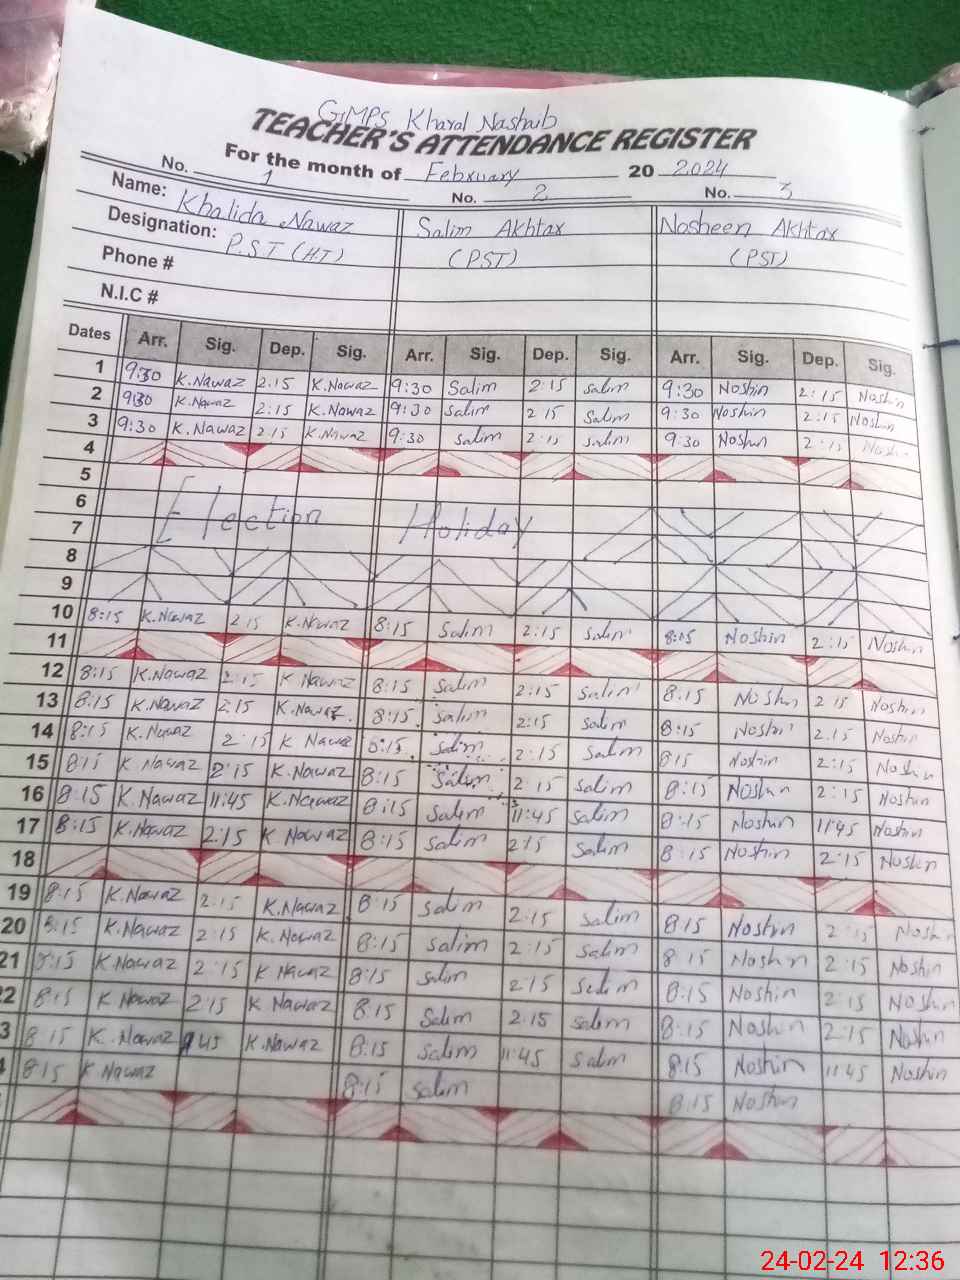 GMPS Kharal Nashaib
TEACHER'S ATTENDANCE REGISTER
For the month of February 20 2024
No. 1 No. 2 No. 3
Name: Khalida Nawaz Salim Akhtar Nosheen Akhtar
Designation: P.S.T (H.T) (PST) (PST)
Phone #
N.I.C #
Dates Arr. Sig. Dep. Sig. Arr. Sig. Dep. Sig. Arr. Sig. Dep. Sig.
1 9:30 K.Nawaz 2:15 K.Nawaz 9:30 Salim 2:15 Salim 9:30 Noshin 2:15 Noshin
2 9:30 K.Nawaz 2:15 K.Nawaz 9:30 Salim 2:15 Salim 9:30 Noshin 2:15 Noshin
3 9:30 K.Nawaz 2:15 K.Nawaz 9:30 Salim 2:15 Salim 9:30 Noshin 2:15 Noshin
4
5
6
7 Election Holiday
8
9
10 8:15 K.Nawaz 2:15 K.Nawaz 8:15 Salim 2:15 Salim 8:15 Noshin 2:15 Noshin
11
12 8:15 K.Nawaz 2:15 K Nawaz 8:15 Salim 2:15 Salim 8:15 Noshin 2:15 Noshin
13 8:15 K.Nawaz 2:15 K.Nawaz 8:15 Salim 2:15 Salim 8:15 Noshin 2:15 Noshin
14 8:15 K.Nawaz 2:15 K Nawaz 8:15 Salim 2:15 Salim 8:15 Noshin 2:15 Noshin
15 8:15 K.Nawaz 2:15 K.Nawaz 8:15 Salim 2:15 Salim 8:15 Noshin 2:15 Noshin
16 8:15 K.Nawaz 11:45 K.Nawaz 8:15 Salim 11:45 Salim 8:15 Noshin 11:45 Noshin
17 8:15 K.Nawaz 2:15 K Nawaz 8:15 Salim 2:15 Salim 8:15 Noshin 2:15 Noshin
18
19 8:15 K.Nawaz 2:15 K.Nawaz 8:15 Salim 2:15 Salim 8:15 Noshin 2:15 Noshin
20 8:15 K.Nawaz 2:15 K.Nawaz 8:15 Salim 2:15 Salim 8:15 Noshin 2:15 Noshin
21 8:15 K.Nawaz 2:15 K Nawaz 8:15 Salim 2:15 Salim 8:15 Noshin 2:15 Noshin
22 8:15 K Nawaz 2:15 K.Nawaz 8:15 Salim 2:15 Salim 8:15 Noshin 2:15 Noshin
3 8:15 K.Nawaz 45 K.Nawaz 8:15 Salim 11:45 Salim 8:15 Noshin 11:45 Noshin
8:15 K Nawaz 8:15 Salim 8:15 Noshin
24-02-24 12:36